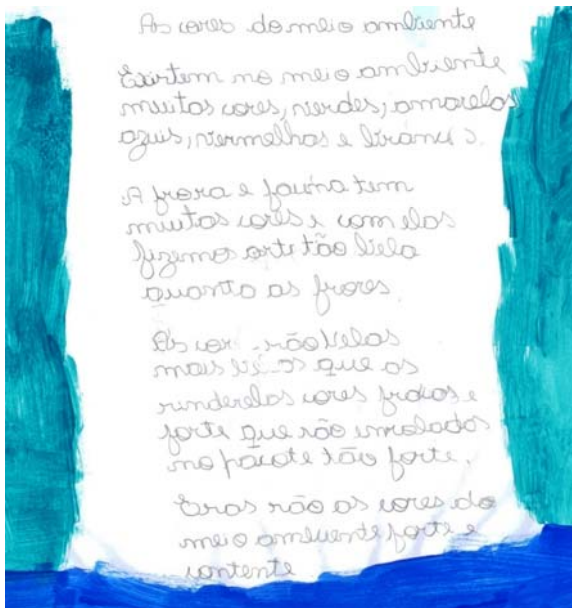 As cores do meio ambiente
Existem no meio ambiente
muitas cores, verdes, amarelas
azuis, vermelhas e
A frora e fauna tem
muitas cores e com elas
fizemos arte tão bela
quanto as frores.
As são belas
mais que as
cores fracas e
forte que são
no pacote tão forte.
Eras são as cores do
meio ambiente forte e
contente